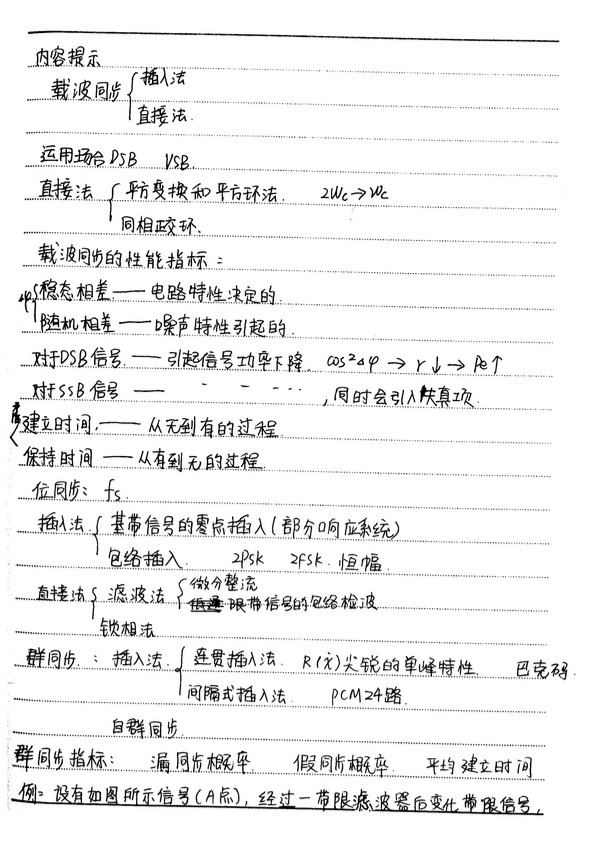 内容提示
载波同步 { 插入法
直接法.
运用场合DSB VSB.
直接法 { 平方变换和平方环法. 2Wc→Wc
同相正交环.
载波同步的性能指标：
Δφ { 稳态相差 —— 电路特性决定的.
随机相差 —— 噪声特性引起的.
对于DSB信号. —— 引起信号功率下降. cos²Δφ → r↓ → Pe↑
对于SSB信号 —— - - ···· , 同时会引入失真项.
建立时间. —— 从无到有的过程.
保持时间 —— 从有到无的过程.
位同步： fs.
插入法 { 基带信号的零点插入(部分响应系统)
包络插入. 2PSK 2FSK. 恒幅.
直接法 { 滤波法 { 微分整流
限带信号的包络检波
锁相法
群同步：插入法 { 连贯插入法. R(x)尖锐的单峰特性. 巴克码.
间隔式插入法 PCM24路.
自群同步.
群同步指标： 漏同步概率. 假同步概率. 平均建立时间
例：设有如图所示信号(A点), 经过一带限滤波器后变化带限信号,